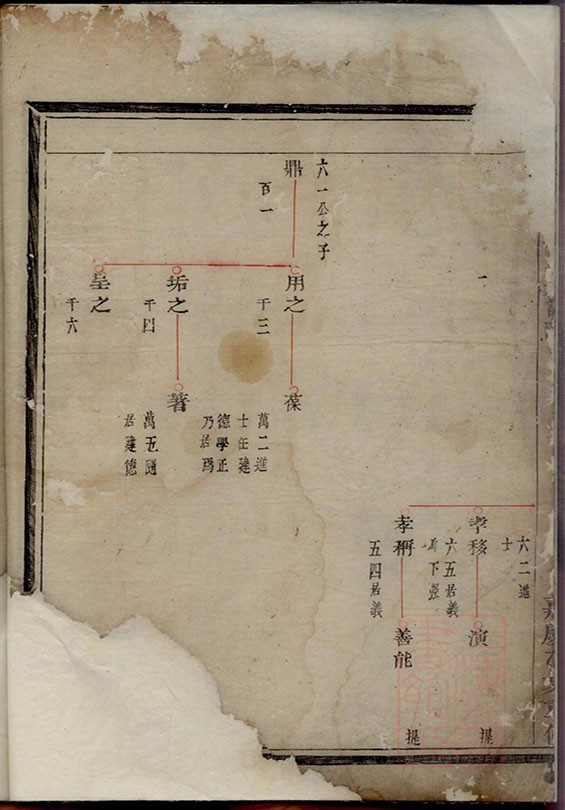 六一公之子
鼎
百一
用之
千三
葆
萬二進
士任建
德學正
乃居焉
垢之
千四
著
萬五隨
居建德
呈之
千六
孝移
六二進
士
演
提
孝稱
六五居義
五四居義
善能
提
嘉慶